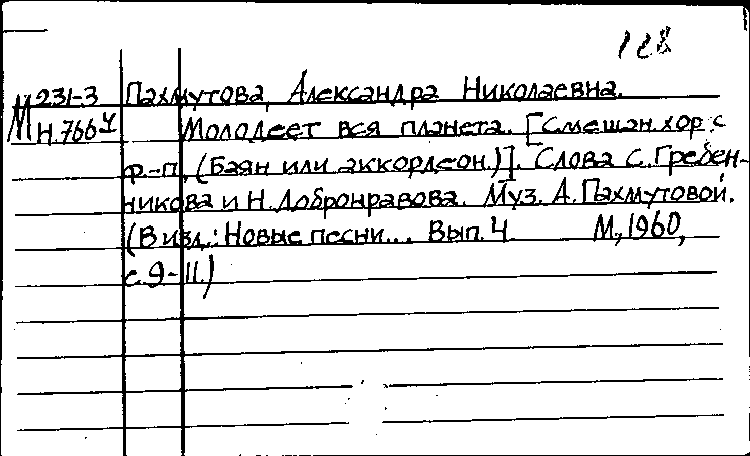 128
М 231-3 Пахмутова, Александра Николаевна.
Н.766 Молодеет вся планета. [Смешан. хор с
ф.-п. (Баян или аккордеон.)]. Слова С. Гребен-
никова и Н. Добронравова. Муз. А. Пахмутовой.
(В изд.: Новые песни... Вып. 4 М., 1960,
с. 9-11.)